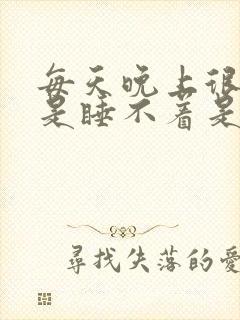 每天晚上很
是睡不着是
尋找失落的愛